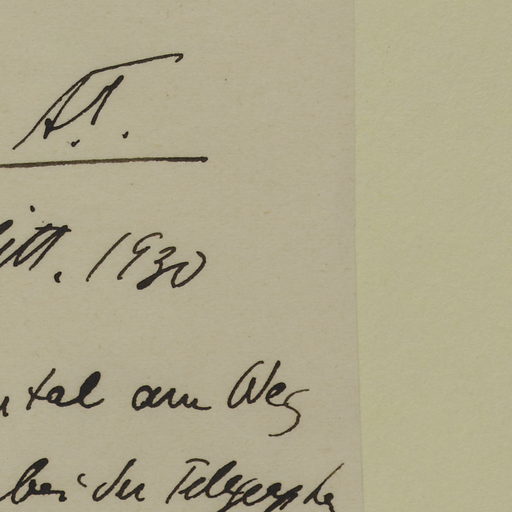 A.T.
itt. 1930
ntal am Weg
bei der Telegraphe